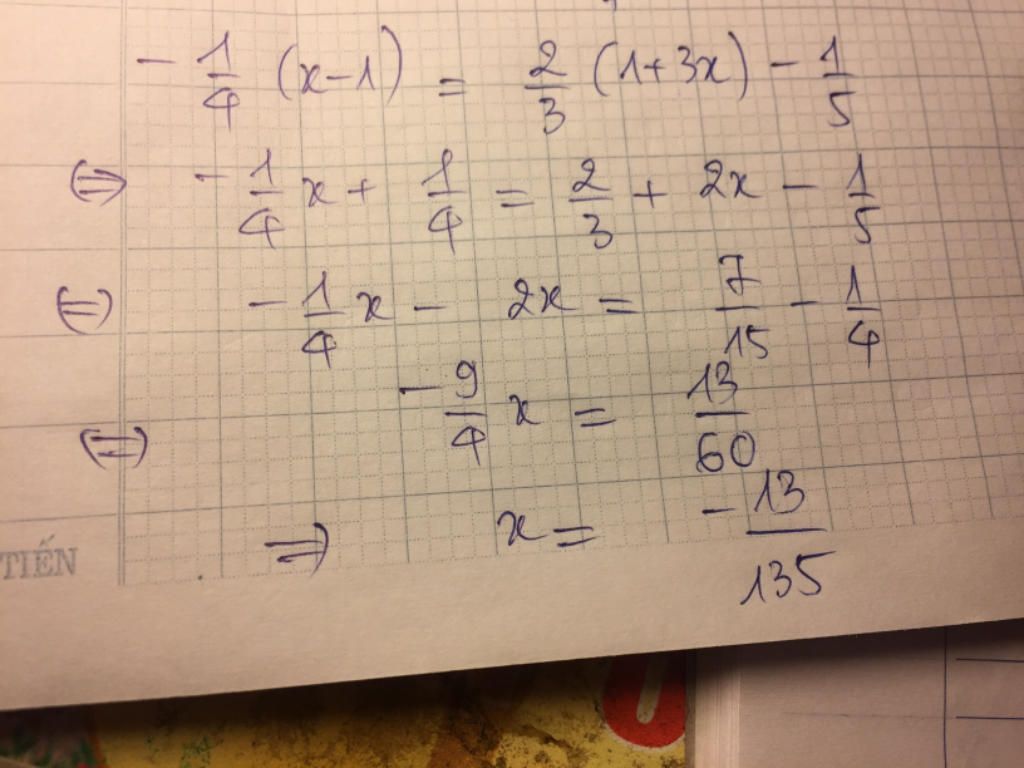 - 1/4 (x-1) = 2/3 (1+3x) - 1/5
⇔ - 1/4 x + 1/4 = 2/3 + 2x - 1/5
⇔ - 1/4 x - 2x = 7/15 - 1/4
⇔ - 9/4 x = 13/60
⇒ x = - 13/135
TIẾN